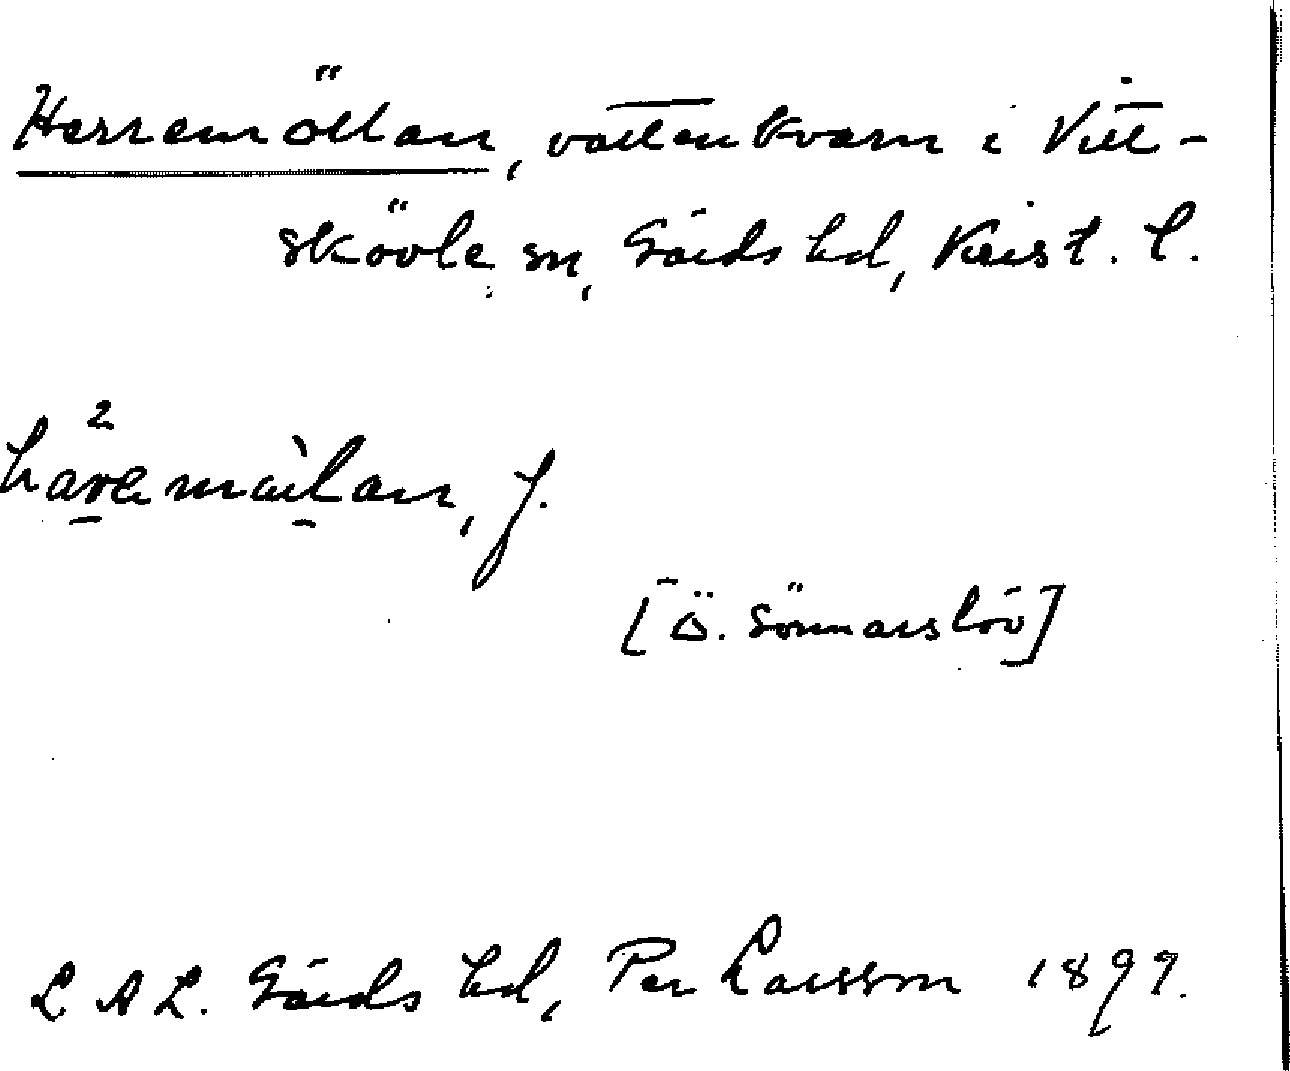 Herremöllan, vattenkvarn i Vitt-
skövle sn, Gärds hd, Krist. l.
häremöilan, f.
[Ö. Sönnarslöv]
L A L. Gärds hd, Per Larsson 1899.